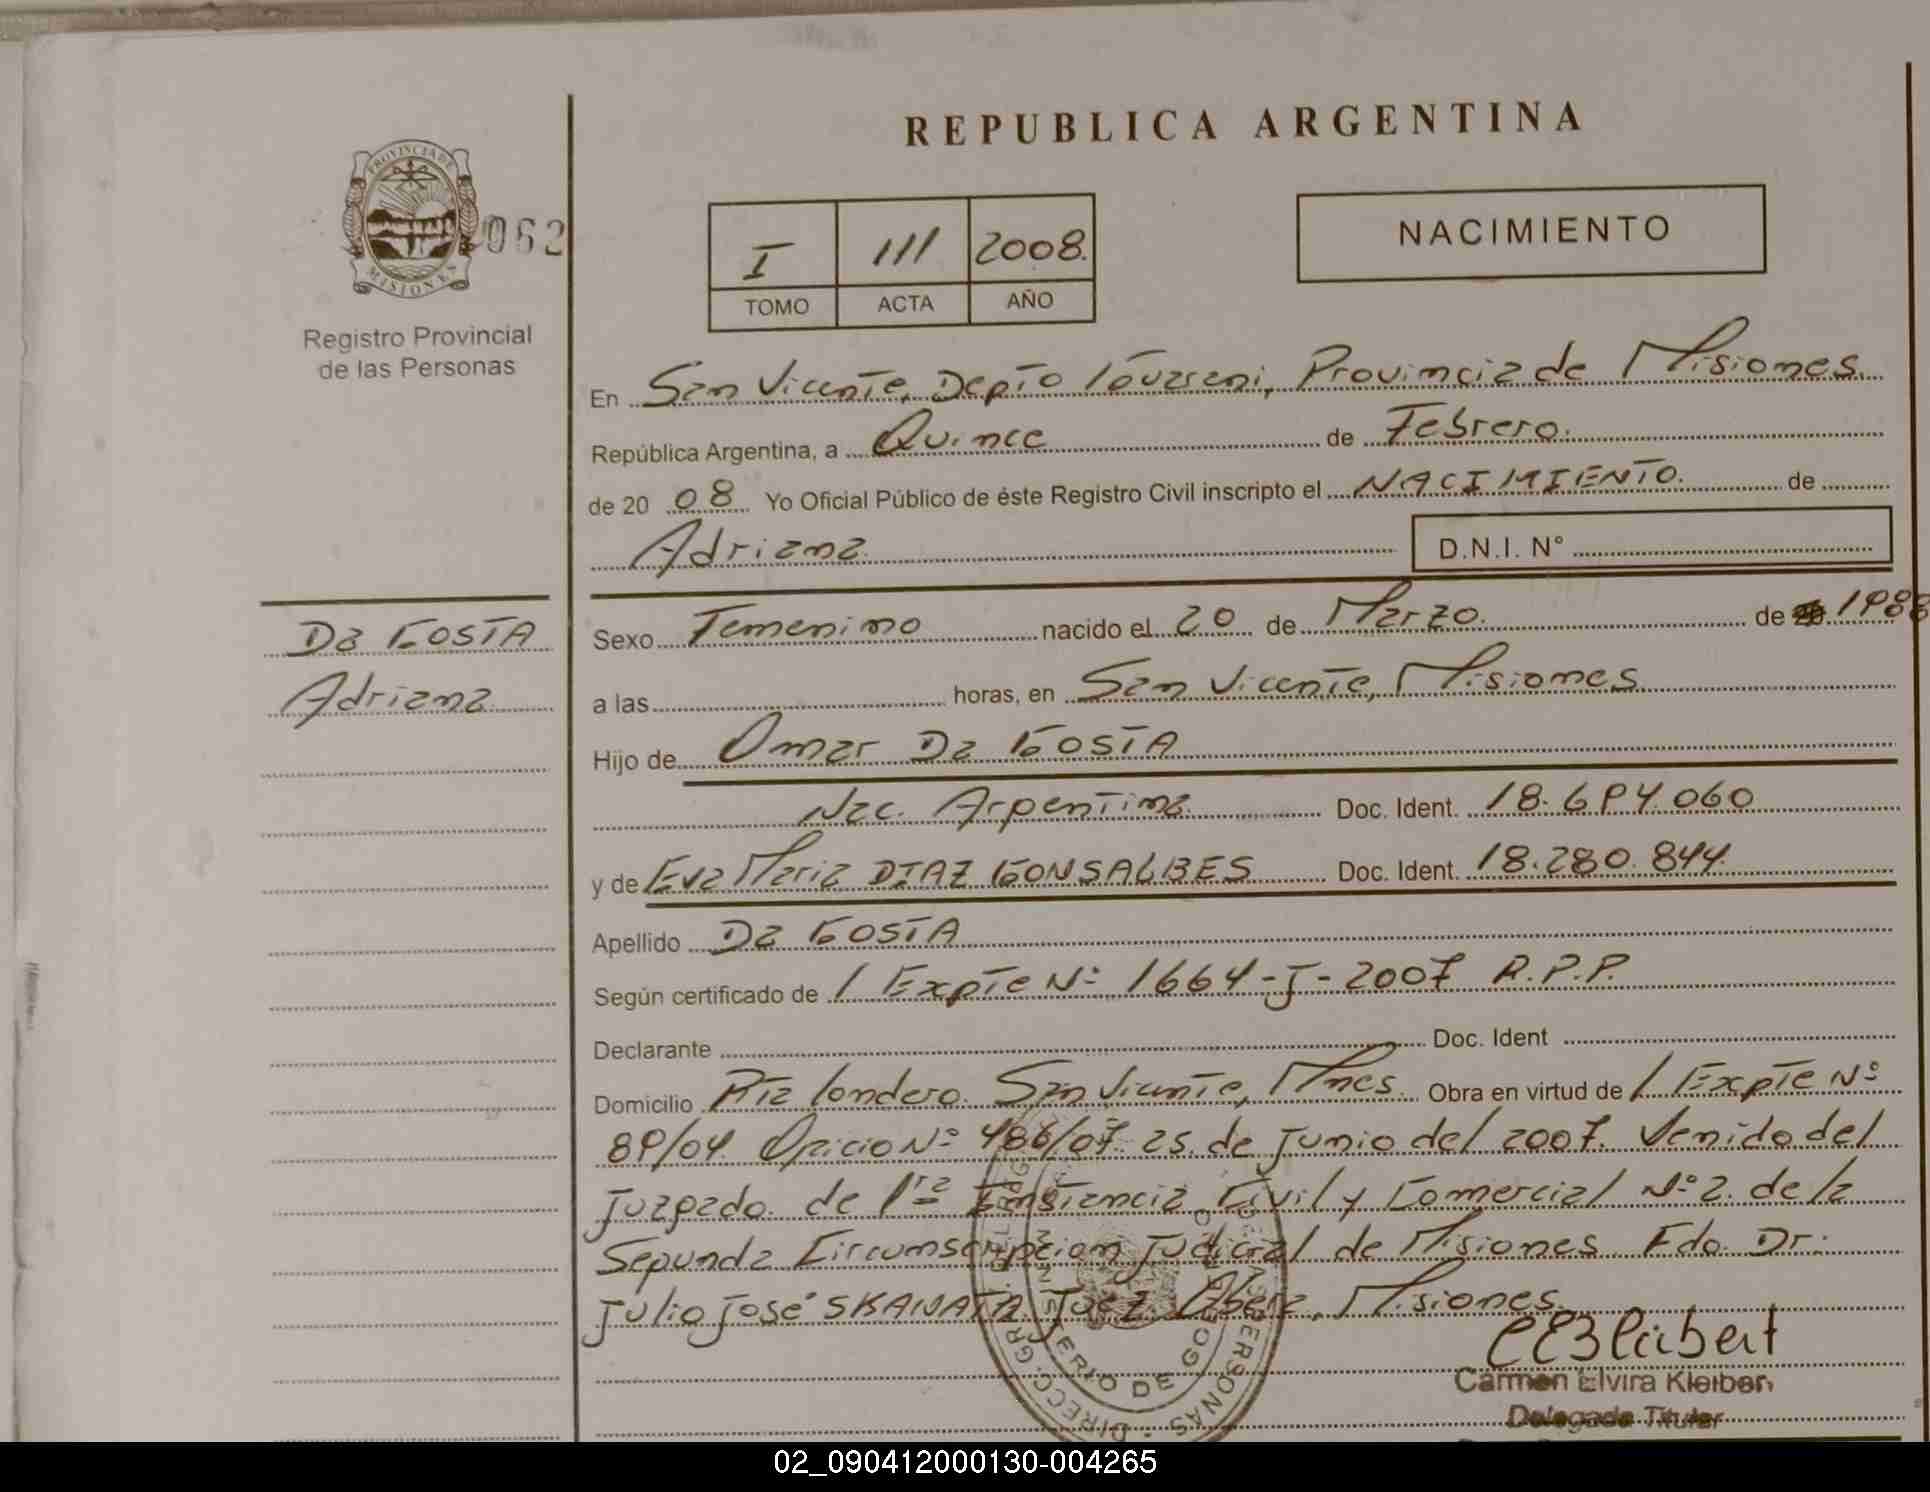 REPUBLICA ARGENTINA
PROVINCIA DE MISIONES
062
Registro Provincial
de las Personas
I 111 2008.
TOMO ACTA AÑO
NACIMIENTO
En San Vicente, Depto Guarani, Provincia de Misiones.
República Argentina, a Quince de Febrero.
de 20 08 Yo Oficial Público de éste Registro Civil inscripto el NACIMIENTO. de
Adriana D.N.I. N°
Da COSTA
Adriana
Sexo Femenino nacido el 20 de Marzo. de 1988
a las horas, en San Vicente, Misiones
Hijo de Omar Da COSTA
Nac. Argentina. Doc. Ident. 18.694.060
y de Eva Maria DIAZ GONSALBES Doc. Ident. 18.280.844.
Apellido Da COSTA
Según certificado de / Expte Nº 1664-J-2007 R.P.P.
Declarante Doc. Ident
Domicilio Rta Londero. San Vicente, Mnes. Obra en virtud de / Expte Nº
89/04. Oficio Nº 486/07. 25. de Junio del 2007. Venido del
Juzgado de 1ra Instancia Civil y Comercial Nº 2. de la
Segunda Circunscripcion Judicial de Misiones. Fdo. Dr.
Julio José SKANATA Juez Obera, Misiones.
Carmen Elvira Kleiber
Delegada Titular
02_090412000130-004265